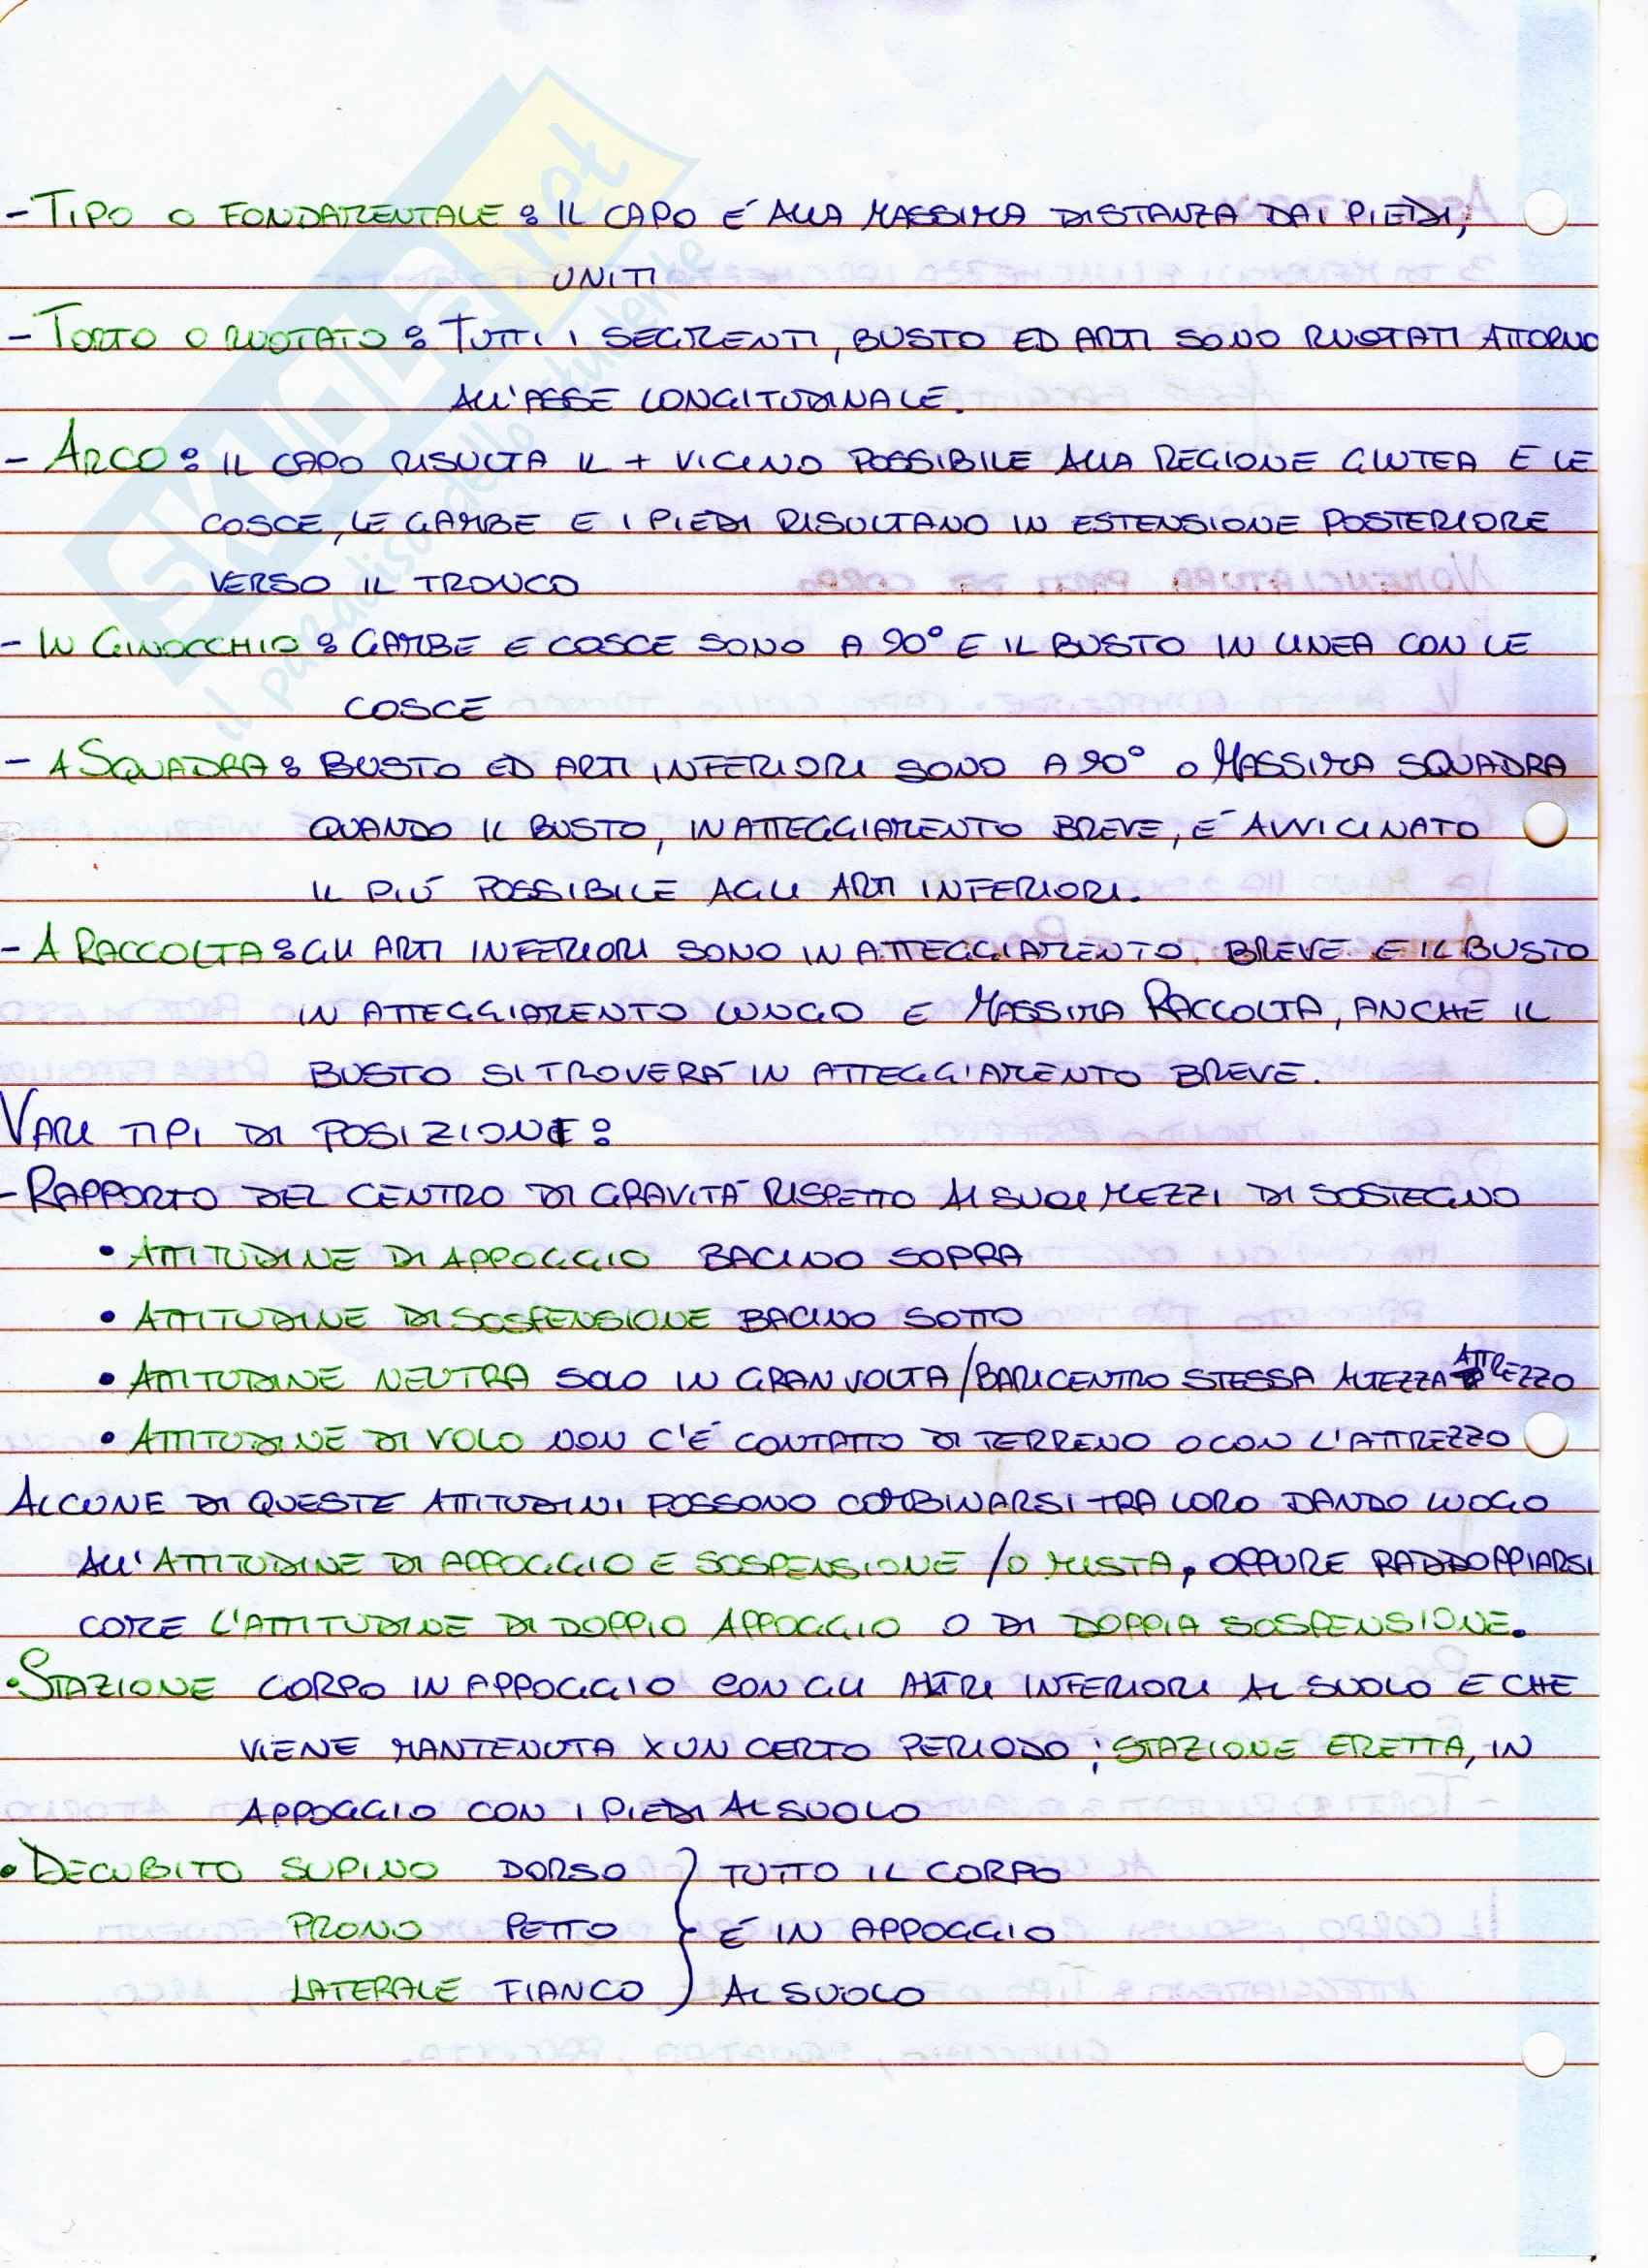 - TIPO O FONDAMENTALE : IL CAPO E' ALLA MASSIMA DISTANZA DAI PIEDI,
UNITI
- TORTO O RUOTATO : TUTTI I SEGMENTI, BUSTO ED ARTI SONO RUOTATI ATTORNO
ALL'ASSE LONGITUDINALE.
- ARCO : IL CAPO RISULTA IL + VICINO POSSIBILE ALLA REGIONE GLUTEA E LE
COSCE, LE GAMBE E I PIEDI RISULTANO IN ESTENSIONE POSTERIORE
VERSO IL TRONCO
- IN GINOCCHIO : GAMBE E COSCE SONO A 90° E IL BUSTO IN LINEA CON LE
COSCE
- A SQUADRA : BUSTO ED ARTI INFERIORI SONO A 90° O MASSIMA SQUADRA
QUANDO IL BUSTO, IN ATTEGGIAMENTO BREVE, E' AVVICINATO
IL PIÙ POSSIBILE AGLI ARTI INFERIORI.
- A RACCOLTA : GLI ARTI INFERIORI SONO IN ATTEGGIAMENTO BREVE E IL BUSTO
IN ATTEGGIAMENTO LUNGO E MASSIMA RACCOLTA, ANCHE IL
BUSTO SI TROVERA' IN ATTEGGIAMENTO BREVE.
VARI TIPI DI POSIZIONE :
- RAPPORTO DEL CENTRO DI GRAVITA' RISPETTO AI SUOI MEZZI DI SOSTEGNO
• ATTITUDINE DI APPOGGIO BACINO SOPRA
• ATTITUDINE DI SOSPENSIONE BACINO SOTTO
• ATTITUDINE NEUTRA SOLO IN GRAN VOLTA / BARICENTRO STESSA ALTEZZA ATTREZZO
• ATTITUDINE DI VOLO NON C'È CONTATTO DI TERRENO O CON L'ATTREZZO
ALCUNE DI QUESTE ATTITUDINI POSSONO COMBINARSI TRA LORO DANDO LUOGO
ALL'ATTITUDINE DI APPOGGIO E SOSPENSIONE / O MISTA, OPPURE RADDOPPIARSI
COME L'ATTITUDINE DI DOPPIO APPOGGIO O DI DOPPIA SOSPENSIONE.
• STAZIONE CORPO IN APPOGGIO CON GLI ALTRI INFERIORI AL SUOLO E CHE
VIENE MANTENUTA X UN CERTO PERIODO ; STAZIONE ERETTA, IN
APPOGGIO CON I PIEDI AL SUOLO
• DECUBITO SUPINO DORSO } TUTTO IL CORPO
PRONO PETTO } È IN APPOGGIO
LATERALE FIANCO } AL SUOLO
SKUOLA.net
il paradiso dello studente